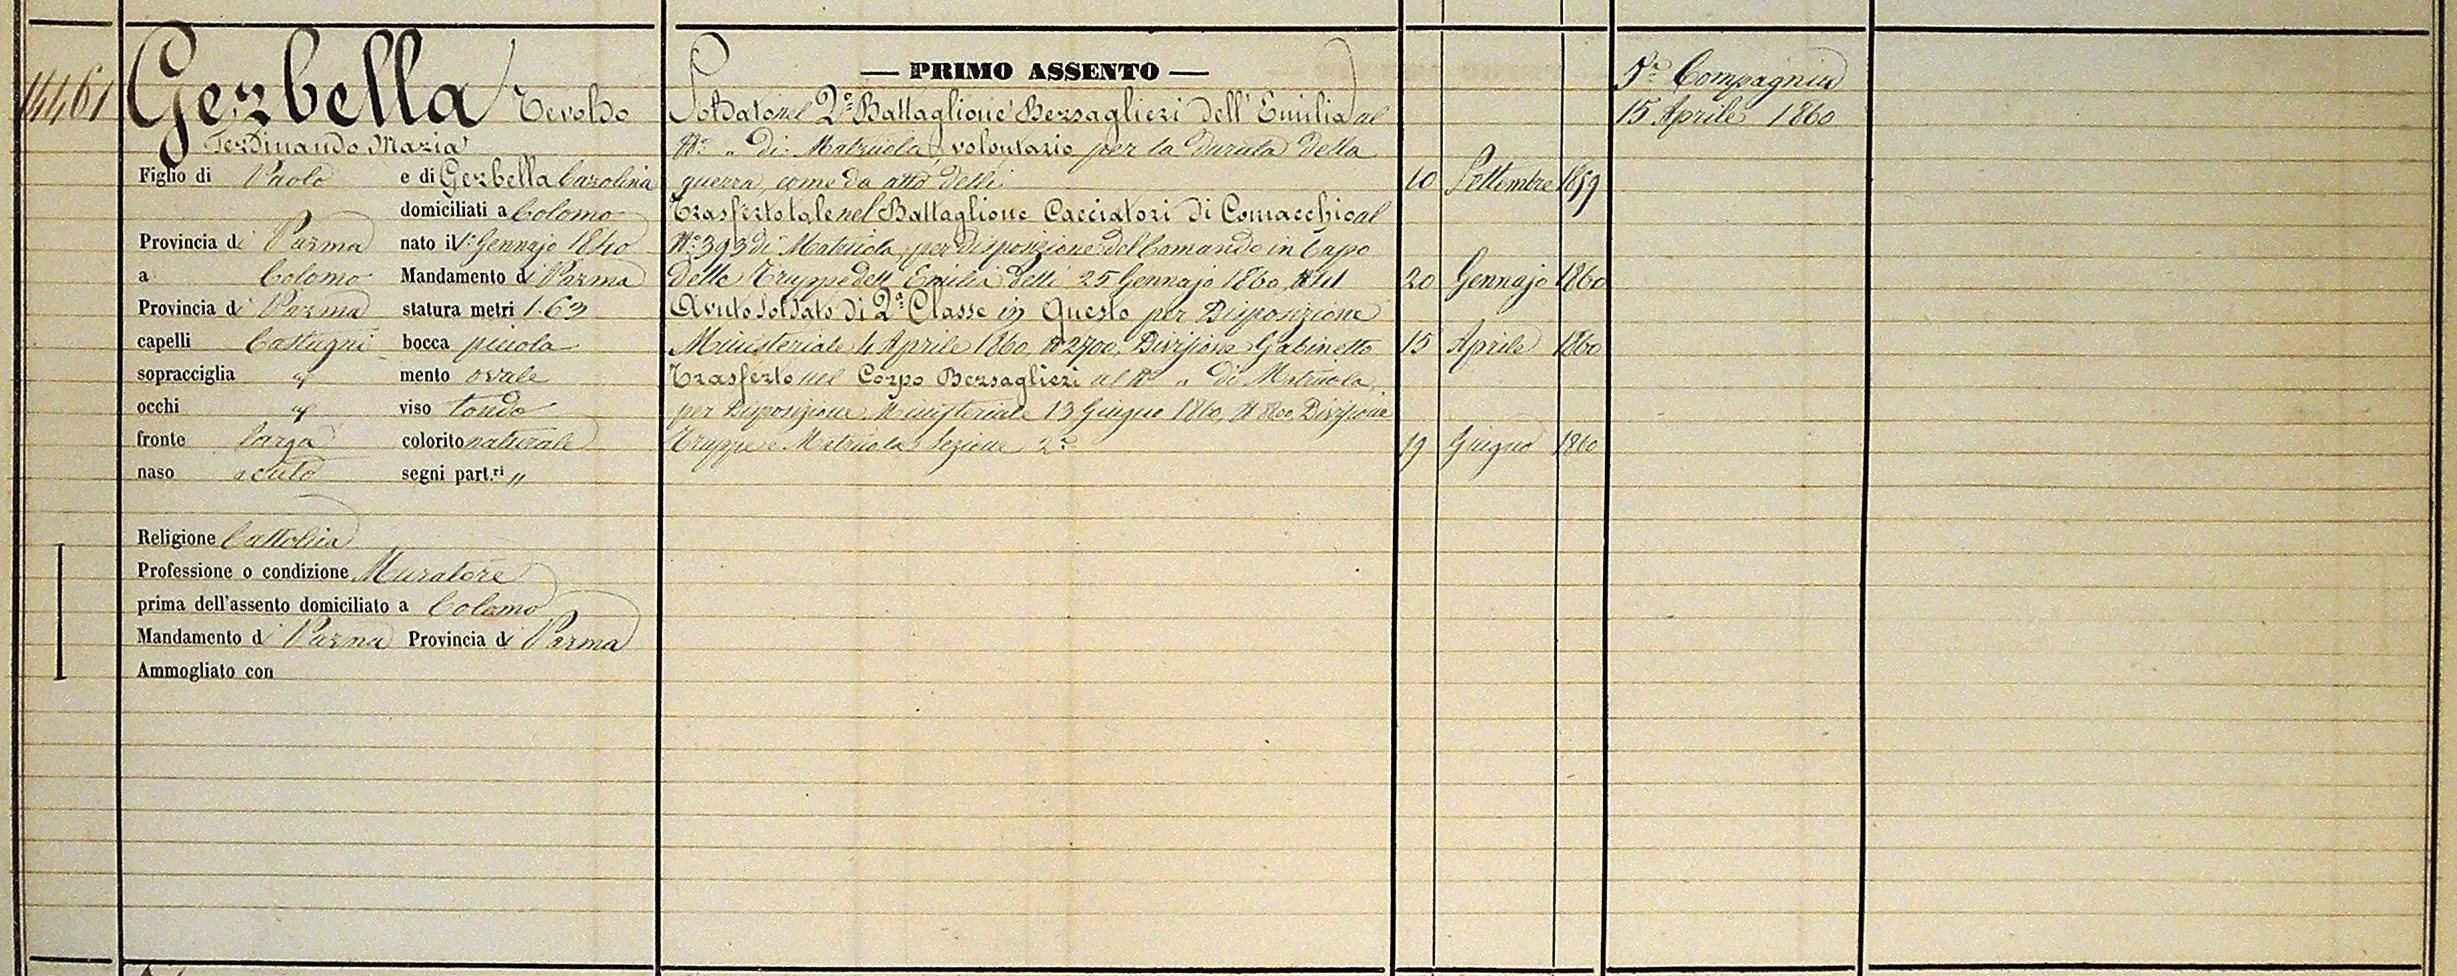 14461
Gerbella Tevoldo
Ferdinando Maria
Figlio di Paolo e di Gerbella Carolina
domiciliati a Colorno
Provincia di Parma nato il 1° Gennajo 1840
a Colorno Mandamento di Parma
Provincia di Parma statura metri 1.63
capelli Castagni bocca piccola
sopracciglia " mento ovale
occhi " viso tondo
fronte larga colorito naturale
naso acuto segni part.ri "
Religione Cattolica
Professione o condizione Muratore
prima dell'assento domiciliato a Colorno
Mandamento di Parma Provincia di Parma
Ammogliato con
— PRIMO ASSENTO —
Soldato nel 2° Battaglione Bersaglieri dell'Emilia al
N° " di Matricola, volontario per la durata della
guerra, come da atto delli 10 Settembre 1859
Trasferto tale nel Battaglione Cacciatori di Comacchio al
N° 393 di Matricola, per disposizione del Comando in Capo
delle Truppe dell'Emilia delli 25 Gennajo 1860, N° 41 20 Gennajo 1860
Avuto soldato di 2ª Classe in Questo per Disposizione
Ministeriale 4 Aprile 1860, N° 2700, Divisione Gabinetto 15 Aprile 1860
Trasferto nel Corpo Bersaglieri al N° " di Matricola,
per Disposizione Ministeriale 13 Giugno 1860, N° 800, Divisione
Truppe e Matricola Sezione 2ª 19 Giugno 1860
5ª Compagnia
15 Aprile 1860